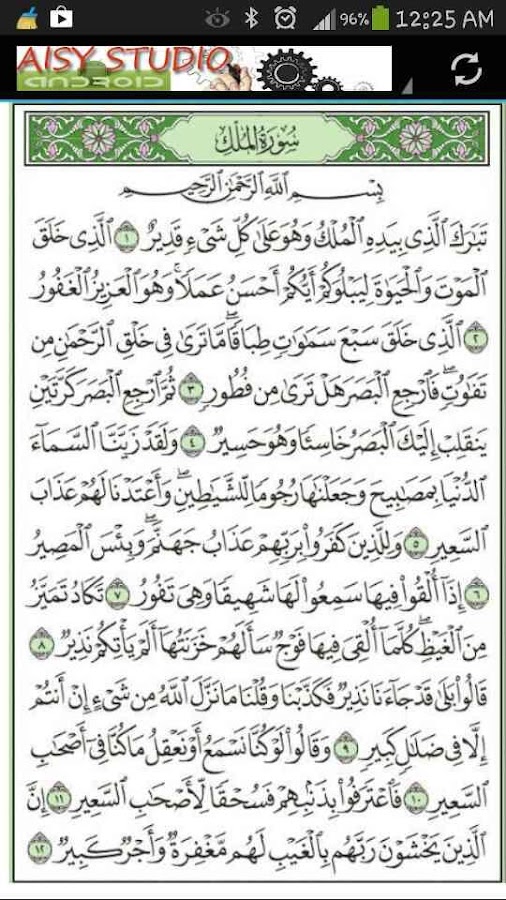 96% 12:25 AM
AISY STUDIO
ANDROID
سُورَةُ المُلْكِ
بِسْمِ ٱللَّهِ ٱلرَّحْمَٰنِ ٱلرَّحِيمِ
تَبَارَكَ ٱلَّذِى بِيَدِهِ ٱلْمُلْكُ وَهُوَ عَلَىٰ كُلِّ شَىْءٍ قَدِيرٌ ١ ٱلَّذِى خَلَقَ
ٱلْمَوْتَ وَٱلْحَيَوٰةَ لِيَبْلُوَكُمْ أَيُّكُمْ أَحْسَنُ عَمَلًا ۚ وَهُوَ ٱلْعَزِيزُ ٱلْغَفُورُ
٢ ٱلَّذِى خَلَقَ سَبْعَ سَمَٰوَٰتٍ طِبَاقًا ۖ مَّا تَرَىٰ فِى خَلْقِ ٱلرَّحْمَٰنِ مِن
تَفَٰوُتٍ ۖ فَٱرْجِعِ ٱلْبَصَرَ هَلْ تَرَىٰ مِن فُطُورٍ ٣ ثُمَّ ٱرْجِعِ ٱلْبَصَرَ كَرَّتَيْنِ
يَنقَلِبْ إِلَيْكَ ٱلْبَصَرُ خَاسِئًا وَهُوَ حَسِيرٌ ٤ وَلَقَدْ زَيَّنَّا ٱلسَّمَآءَ
ٱلدُّنْيَا بِمَصَٰبِيحَ وَجَعَلْنَٰهَا رُجُومًا لِّلشَّيَٰطِينِ ۖ وَأَعْتَدْنَا لَهُمْ عَذَابَ
ٱلسَّعِيرِ ٥ وَلِلَّذِينَ كَفَرُوا۟ بِرَبِّهِمْ عَذَابُ جَهَنَّمَ ۖ وَبِئْسَ ٱلْمَصِيرُ
٦ إِذَآ أُلْقُوا۟ فِيهَا سَمِعُوا۟ لَهَا شَهِيقًا وَهِىَ تَفُورُ ٧ تَكَادُ تَمَيَّزُ
مِنَ ٱلْغَيْظِ ۖ كُلَّمَآ أُلْقِىَ فِيهَا فَوْجٌ سَأَلَهُمْ خَزَنَتُهَآ أَلَمْ يَأْتِكُمْ نَذِيرٌ ٨
قَالُوا۟ بَلَىٰ قَدْ جَآءَنَا نَذِيرٌ فَكَذَّبْنَا وَقُلْنَا مَا نَزَّلَ ٱللَّهُ مِن شَىْءٍ إِنْ أَنتُمْ
إِلَّا فِى ضَلَٰلٍ كَبِيرٍ ٩ وَقَالُوا۟ لَوْ كُنَّا نَسْمَعُ أَوْ نَعْقِلُ مَا كُنَّا فِىٓ أَصْحَٰبِ
ٱلسَّعِيرِ ١٠ فَٱعْتَرَفُوا۟ بِذَنۢبِهِمْ فَسُحْقًا لِّأَصْحَٰبِ ٱلسَّعِيرِ ١١ إِنَّ
ٱلَّذِينَ يَخْشَوْنَ رَبَّهُم بِٱلْغَيْبِ لَهُم مَّغْفِرَةٌ وَأَجْرٌ كَبِيرٌ ١٢